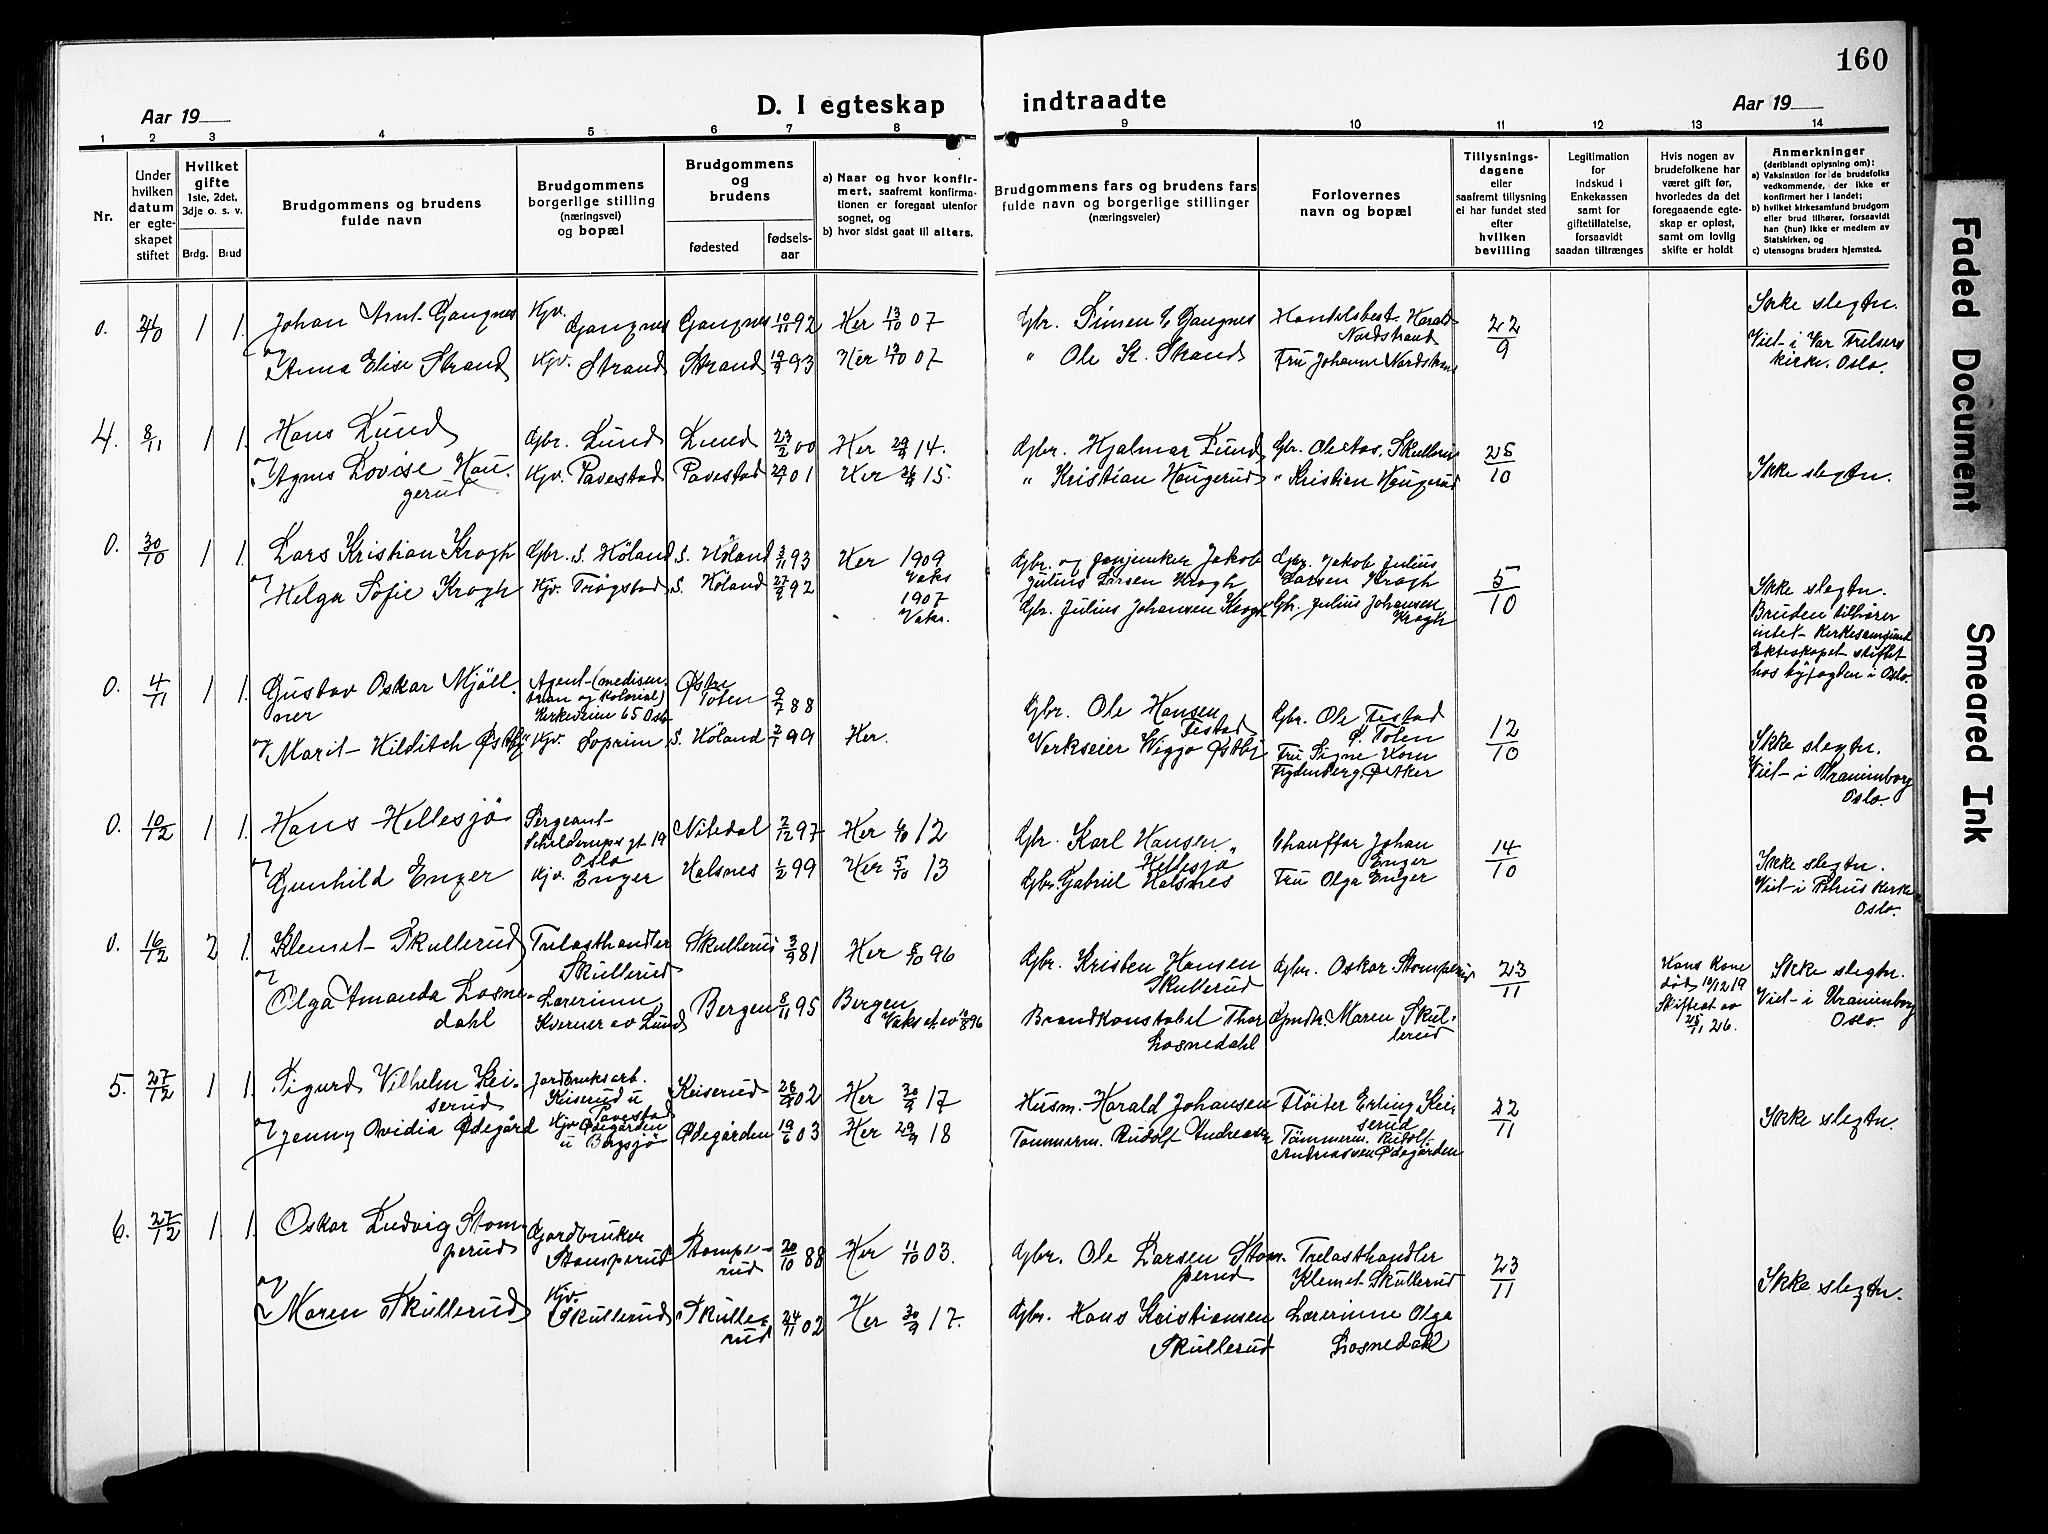 160
D. I egteskap indtraadte
Aar 19
Aar 19
1 2 3 4 5 6 7 8 9 10 11 12 13 14
Nr.
Under
hvilken
datum
er egte-
skapet
stiftet
Hvilket
gifte
1ste, 2det,
3dje o. s. v.
Brdg. Brud
Brudgommens og brudens
fulde navn
Brudgommens
borgerlige stilling
(næringsvei)
og bopæl
Brudgommens
og
brudens
fødested
fødsels-
aar
a) Naar og hvor konfir-
mert, saafremt konfirma-
tionen er foregaat utenfor
sognet, og
b) hvor sidst gaat til alters.
Brudgommens fars og brudens fars
fulde navn og borgerlige stillinger
(næringsveier)
Forlovernes
navn og bopæl
Tillysnings-
dagene
eller
saafremt tillysning
ei har fundet sted
efter
hvilken
bevilling
Legitimation
for
indskud i
Enkekassen
samt for
giftetillatelse,
forsaavidt
saadan tiltrænges
Hvis nogen av
brudefolkene har
været gift før,
hvorledes da det
foregaaende egte-
skap er opløst,
samt om lovlig
skifte er holdt
Anmerkninger
(deriblandt oplysning om):
a) Vaksination for de brudefolks
vedkommende, der ikke er
konfirmert her i landet;
b) hvilket kirkesamfund brudgom
eller brud tilhører, forsaavidt
han (hun) ikke er medlem av
Statskirken, og
c) utensogns bruders hjemsted.
0. 1 1. Johan Arnt Gangnes Kjv. Gangnes Gangnes 10/11 92 Her 13/10 07 Gbr. Simen Gangnes Handelsbest. Harald Nordstrand 22/9 Ikke slegtn.
og Anna Elise Strand Kjv. Strand Strand 93 Her 07 " Ole K. Strand Fru Johanne Viet i Vor Frelsers
kirke. Oslo.
4. 8/11 1 1. Hans Lund Gbr. Lund Lund 23/2 00 Her 14. Gbr. Hjalmar Lund Gbr. 25/10
og Agnes Lovise Hau- Kjv. Pavestad Pavestad 01 Her 15. " Kristian Haugerud " Kristian Haugerud Ikke slegtn.
gerud
0. 30/10 1 1. Lars Kristian Krogh Gbr. S. Høland S. Høland 3/11 93 Her 1909 Gbr. og Jakob Gbr. Jakob Julius
Vaks Julius Larsen Krogh Larsen Krogh
og Helga Sofie Krogh Kjv. Trøgstad S. Høland 92 1907 Gbr. Julius Johansen Krogh Gbr. Julius Johansen 5/10 Ikke slegtn.
" Vaks. Krogh Bruden tilhører
intet kirkesamfund
Ekteskapet stiftet
hos byfogden i Oslo.
0. 4/11 1 1. Gustav Oskar Mjöll- Agent (medisin- Østre
ner Kirkeveien 65 Oslo Toten 9/7 88 Gbr. Ole Hansen Gbr. Ole Festad
Festad Toten 12/10
og Marit Hilditch Østby Kjv. Soprim S. Höland 99 Her. Verkseier Wiggo Østby Fru Signe Ikke slegtn.
Viet i Uranienborg
Oslo.
0. 10/12 1 1. Hans Hellesjö Sergeant Nitedal 2/12 97 Her 12 Gbr. Karl Hansen Chauffør Johan
gt 19 Hellesjø Enger 14/10
Oslo
og Gunhild Enger Kjv. Enger Halsnes 1/2 99 Her 5/10 13 Gbr. Gabriel Halsnes Fru Olga Enger Ikke slegtn.
Viet i Petrus kirke
Oslo.
0. 16/12 2 1. Klemet Skullerud Trelasthandler Skullerud 3/9 81 Her 8/10 96 Gbr. Kristen Hansen Gbr. Oskar Stomperud 23/11 Hans Kone Ikke slegtn.
Skullerud Skullerud død 10/12 19
og Olga Amanda Losne- Lærerinne Bergen 8/11 95 Bergen Brandkonstabel Thor Maren Skul- Skifteat. av Viet i Uranienborg
dahl Kverner av Lund Vaks Losnedahl lerud 26. Oslo.
5. 27/12 1 1. Sigurd Vilhelm Kei- Jordbruksarb. Keiserud 02 Her 30/9 17 Husm. Harald Johansen Fløiter Erling Kei- 22/11
serud Keiserud u serud
Pavestad
og Jenny Ovidia Ødegård Kjv. Ødegården Ødegården 19/6 03 Her 29/9 18 Tømmerm. Rudolf Andreassen Tømmerm. Rudolf Ikke slegtn.
u Bergsjø Andreassen Ødegården
6. 27/12 1 1. Oskar Ludvig Stom- Gardbruker Stompe- 20/10 88 Her 11/10 03. Gbr. Ole Larsen Stom- Trelasthandler 23/11
perud Stomperud rud perud Klemet Skullerud
og Maren Skullerud Kjv. Skullerud Skulle- 24/11 02 Her 30/9 17. Gbr. Hans Kristiansen Lærerinne Olga Ikke slegtn.
rud Skullerud Losnedahl
Faded Document
Smeared Ink